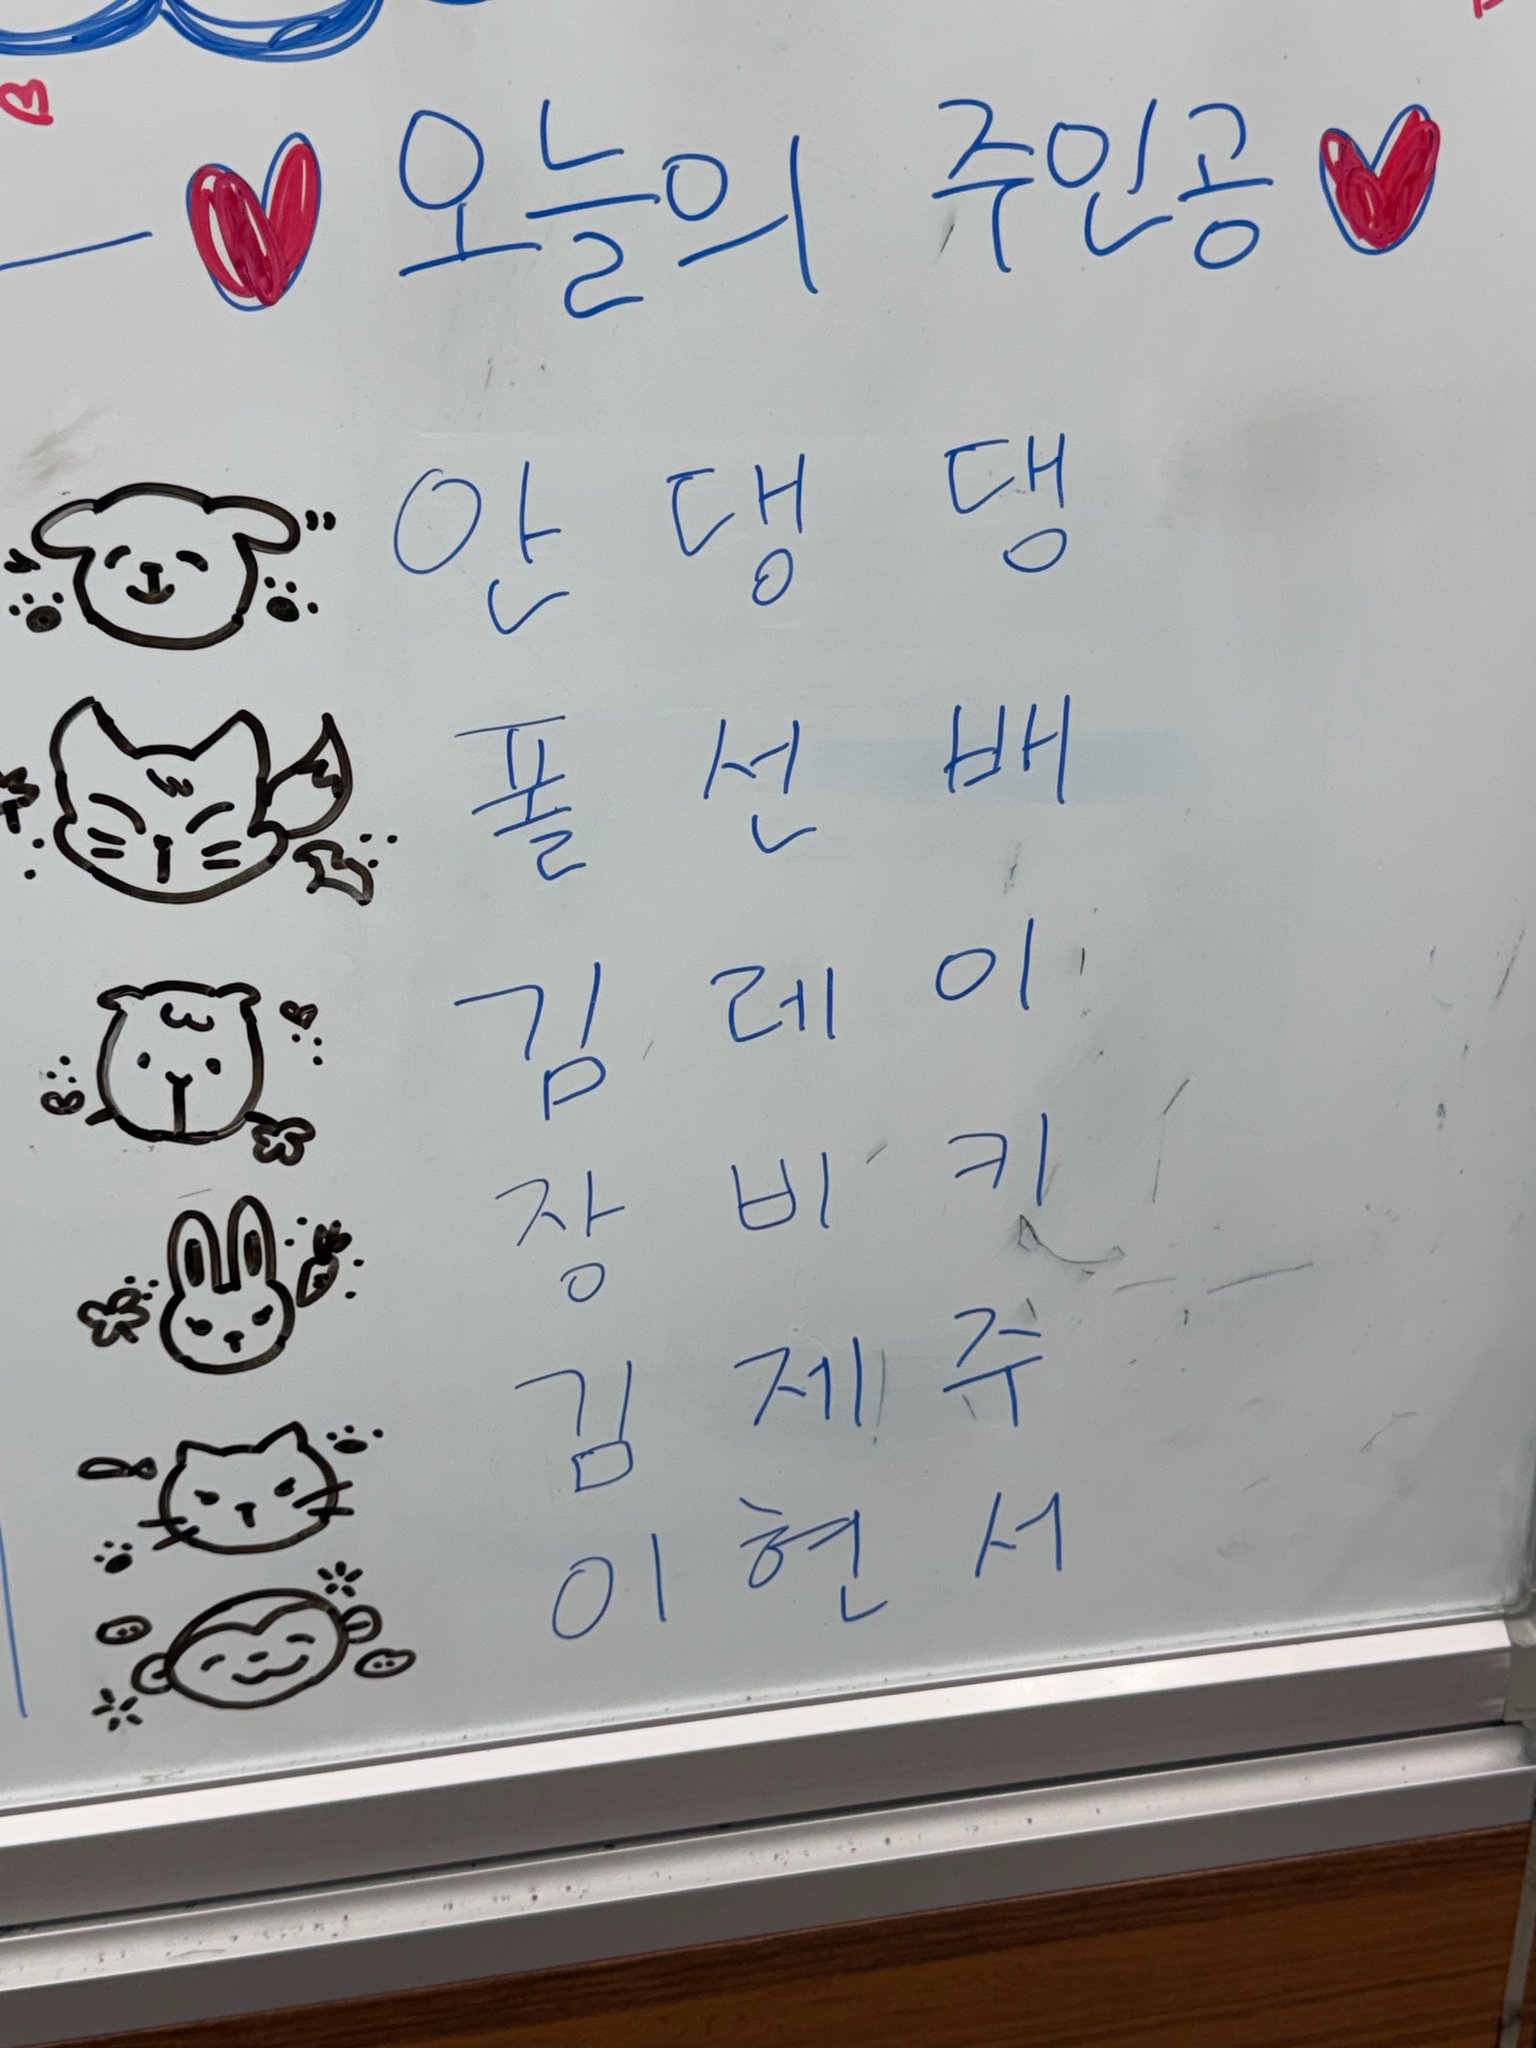 오늘의 주인공
안 댕 댕
폴 선 배
김 레 이
장 비 키
김 제 주
이 현 서